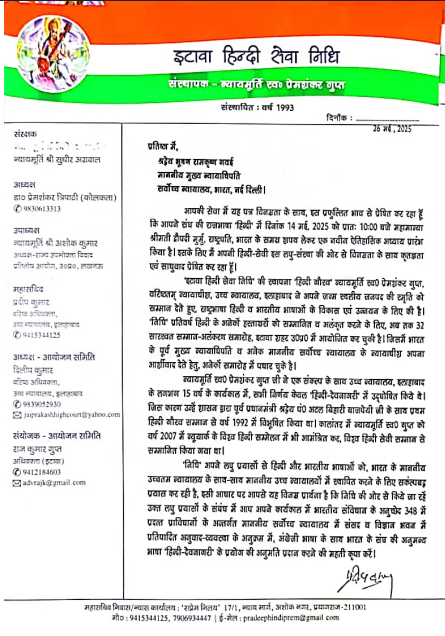 इटावा हिन्दी सेवा निधि
संस्थापक - न्यायमूर्ति स्व० प्रेमशंकर गुप्त
संस्थापित : वर्ष 1993
दिनाँक :
26 मई, 2025
संरक्षक
न्यायमूर्ति श्री सुधीर अग्रवाल
अध्यक्ष
डा० प्रेमशंकर त्रिपाठी (कोलकता)
9830613313
उपाध्यक्ष
न्यायमूर्ति श्री अशोक कुमार
अध्यक्ष-राज्य उपभोक्ता विवाद
प्रतितोष आयोग, उ०प्र०, लखनऊ
महासचिव
प्रदीप कुमार
वरिष्ठ अधिवक्ता,
उच्च न्यायालय, इलाहाबाद
9415344125
अध्यक्ष - आयोजन समिति
दिलीप कुमार
वरिष्ठ अधिवक्ता,
उच्च न्यायालय, इलाहाबाद
9839052930
jaiprakashhighcourt@yahoo.com
संयोजक - आयोजन समिति
राज कुमार गुप्त
अधिवक्ता (इटावा)
9412184603
advrajk@gmail.com
प्रतिष्ठा में,
श्रद्धेय भूषण रामकृष्ण गवई
माननीय मुख्य न्यायाधिपति
सर्वोच्च न्यायालय, भारत, नई दिल्ली।
आपकी सेवा में यह पत्र विनम्रता के साथ, इस प्रफुल्लित भाव से प्रेषित कर रहा हूँ
कि आपने संघ की राजभाषा 'हिन्दी' में दिनांक 14 मई, 2025 को प्रातः 10:00 बजे महामान्या
श्रीमती द्रौपदी मुर्मु, राष्ट्रपति, भारत के समक्ष शपथ लेकर एक नवीन ऐतिहासिक अध्याय प्रारंभ
किया है। इसके लिए मैं अपनी हिन्दी-सेवी इस लघु-संस्था की ओर से विनम्रता के साथ कृतज्ञता
एवं साधुवाद प्रेषित कर रहा हूँ।
'इटावा हिन्दी सेवा निधि' की स्थापना 'हिन्दी गौरव' न्यायमूर्ति स्व० प्रेमशंकर गुप्त,
वरिष्ठतम् न्यायाधीश, उच्च न्यायालय, इलाहाबाद ने अपने जन्म स्थलीय जनपद की स्मृति को
सम्मान देते हुए, राष्ट्रभाषा हिन्दी व भारतीय भाषाओं के विकास एवं उन्नयन के लिए की है।
'निधि' प्रतिवर्ष हिन्दी के अनेकों हस्ताक्षरों को सम्मानित व अलंकृत करने के लिए, अब तक 32
सारस्वत सम्मान-अलंकरण समारोह, इटावा शहर उ०प्र० में आयोजित कर चुकी है। जिसमें भारत
के पूर्व मुख्य न्यायाधिपति व अनेक माननीय सर्वोच्च न्यायालय के न्यायाधीश अपना
आशीर्वाद देते हेतु, अनेकों समारोह में पधार चुके है।
न्यायमूर्ति स्व० प्रेमशंकर गुप्त जी ने एक संकल्प के साथ उच्च न्यायालय, इलाहाबाद
के लगभग 15 वर्ष के कार्यकाल में, सभी निर्णय केवल 'हिन्दी-देवनागरी' में उद्घोषित किये थे।
जिस कारण उन्हें शासन द्वारा पूर्व प्रधानमन्त्री श्रद्धेय पं० अटल बिहारी बाजपेयी जी के साथ प्रथम
हिन्दी गौरव सम्मान से वर्ष 1992 में विभूषित किया था। कालांतर में न्यायमूर्ति स्व० गुप्त को
वर्ष 2007 में न्यूयार्क के विश्व हिन्दी सम्मेलन में भी आमंत्रित कर, विश्व हिन्दी सेवी सम्मान से
सम्मानित किया गया था।
'निधि' अपने लघु प्रयासों से हिन्दी और भारतीय भाषाओं को, भारत के माननीय
उच्चतम न्यायालय के साथ-साथ माननीय उच्च न्यायालयों में स्थापित करने के लिए संकल्पबद्ध
प्रयास कर रही है, इसी आधार पर आपसे यह विनम्र प्रार्थना है कि निधि की ओर से किये जा रहें
उक्त लघु प्रयासों के संबंध में आप अपने कार्यकाल में भारतीय संविधान के अनुच्छेद 348 में
प्रदत्त प्राविधानों के अन्तर्गत माननीय सर्वोच्च न्यायालय में संसद व विज्ञान भवन में
प्रतिपादित अनुवाद-व्यवस्था के अनुक्रम में, अंग्रेजी भाषा के साथ भारत के संघ की अनुमन्य
भाषा 'हिन्दी-देवनागरी' के प्रयोग की अनुमति प्रदान करने की महती कृपा करें।
महासचिव निवास/न्यास कार्यालय : 'सप्रेम निलय' 17/1, न्याय मार्ग, अशोक नगर, प्रयागराज-211001
मो० : 9415344125, 7906934447 | ई-मेल : pradeephindiprem@gmail.com